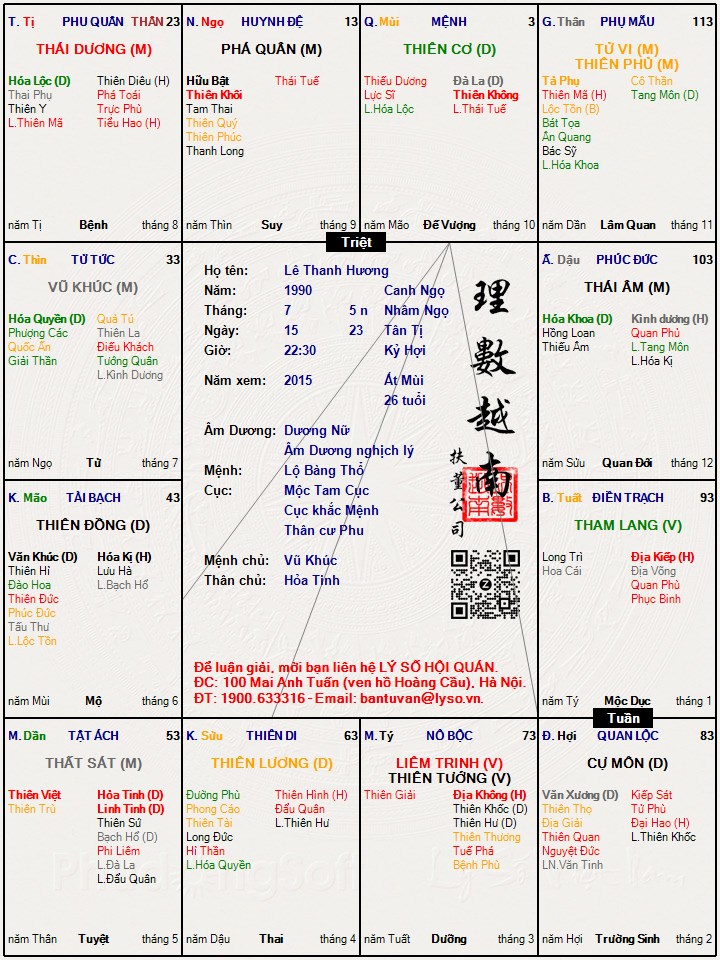 T. Tị PHU QUÂN THÂN 23
THÁI DƯƠNG (M)
Hóa Lộc (D) Thiên Diêu (H)
Thai Phụ Phá Toái
Thiên Y Trực Phù
L.Thiên Mã Tiểu Hao (H)
năm Tị Bệnh tháng 8
N. Ngọ HUYNH ĐỆ 13
PHÁ QUÂN (M)
Hữu Bật Thái Tuế
Thiên Khôi
Tam Thai
Thiên Quý
Thiên Phúc
Thanh Long
năm Thìn Suy tháng 9
Q. Mùi MỆNH 3
THIÊN CƠ (D)
Thiếu Dương Đà La (D)
Lực Sĩ Thiên Không
L.Hóa Lộc L.Thái Tuế
năm Mão Đế Vượng tháng 10
G. Thân PHỤ MẪU 113
TỬ VI (M)
THIÊN PHỦ (M)
Tả Phụ Cô Thần
Thiên Mã (H) Tang Môn (D)
Lộc Tồn (B)
Bát Tọa
Ân Quang
Bác Sỹ
L.Hóa Khoa
năm Dần Lâm Quan tháng 11
Triệt
C. Thìn TỬ TỨC 33
VŨ KHÚC (M)
Hóa Quyền (D) Quả Tú
Phượng Các Thiên La
Quốc Ấn Điếu Khách
Giải Thần Tướng Quân
L.Kình Dương
năm Ngọ Tử tháng 7
Họ tên: Lê Thanh Hương
Năm: 1990 Canh Ngọ
Tháng: 7 5 n Nhâm Ngọ
Ngày: 15 23 Tân Tị
Giờ: 22:30 Kỷ Hợi
Năm xem: 2015 Ất Mùi
26 tuổi
Âm Dương: Dương Nữ
Âm Dương nghịch lý
Mệnh: Lộ Bàng Thổ
Cục: Mộc Tam Cục
Cục khắc Mệnh
Thân cư Phu
Mệnh chủ: Vũ Khúc
Thân chủ: Hỏa Tinh
理數越南
扶董公司
Để luận giải, mời bạn liên hệ LÝ SỐ HỘI QUÁN.
ĐC: 100 Mai Anh Tuấn (ven hồ Hoàng Cầu), Hà Nội.
ĐT: 1900.633316 - Email: bantuvan@lyso.vn.
Ấ. Dậu PHÚC ĐỨC 103
THÁI ÂM (M)
Hóa Khoa (D) Kình dương (H)
Hồng Loan Quan Phủ
Thiếu Âm L.Tang Môn
L.Hóa Kị
năm Sửu Quan Đới tháng 12
K. Mão TÀI BẠCH 43
THIÊN ĐỒNG (D)
Văn Khúc (D) Hóa Kị (H)
Thiên Hỉ Lưu Hà
Đào Hoa L.Bạch Hổ
Thiên Đức
Phúc Đức
Tấu Thư
L.Lộc Tồn
năm Mùi Mộ tháng 6
B. Tuất ĐIỀN TRẠCH 93
THAM LANG (V)
Long Trì Địa Kiếp (H)
Hoa Cái Địa Võng
Quan Phù
Phục Binh
năm Tý Mộc Dục tháng 1
Tuần
M. Dần TẬT ÁCH 53
THẤT SÁT (M)
Thiên Việt Hỏa Tinh (D)
Thiên Trù Linh Tinh (D)
Thiên Sứ
Bạch Hổ (D)
Phi Liêm
L.Đà La
L.Đẩu Quân
năm Thân Tuyệt tháng 5
K. Sửu THIÊN DI 63
THIÊN LƯƠNG (D)
Đường Phù Thiên Hình (H)
Phong Cáo Đẩu Quân
Thiên Tài L.Thiên Hư
Long Đức
Hỉ Thần
L.Hóa Quyền
năm Dậu Thai tháng 4
M. Tý NÔ BỘC 73
LIÊM TRINH (V)
THIÊN TƯỚNG (V)
Thiên Giải Địa Không (H)
Thiên Khốc (D)
Thiên Hư (D)
Thiên Thương
Tuế Phá
Bệnh Phù
năm Tuất Dưỡng tháng 3
Đ. Hợi QUAN LỘC 83
CỰ MÔN (D)
Văn Xương (D) Kiếp Sát
Thiên Thọ Tử Phù
Địa Giải Đại Hao (H)
Thiên Quan L.Thiên Khốc
Nguyệt Đức
LN.Văn Tinh
năm Hợi Trường Sinh tháng 2